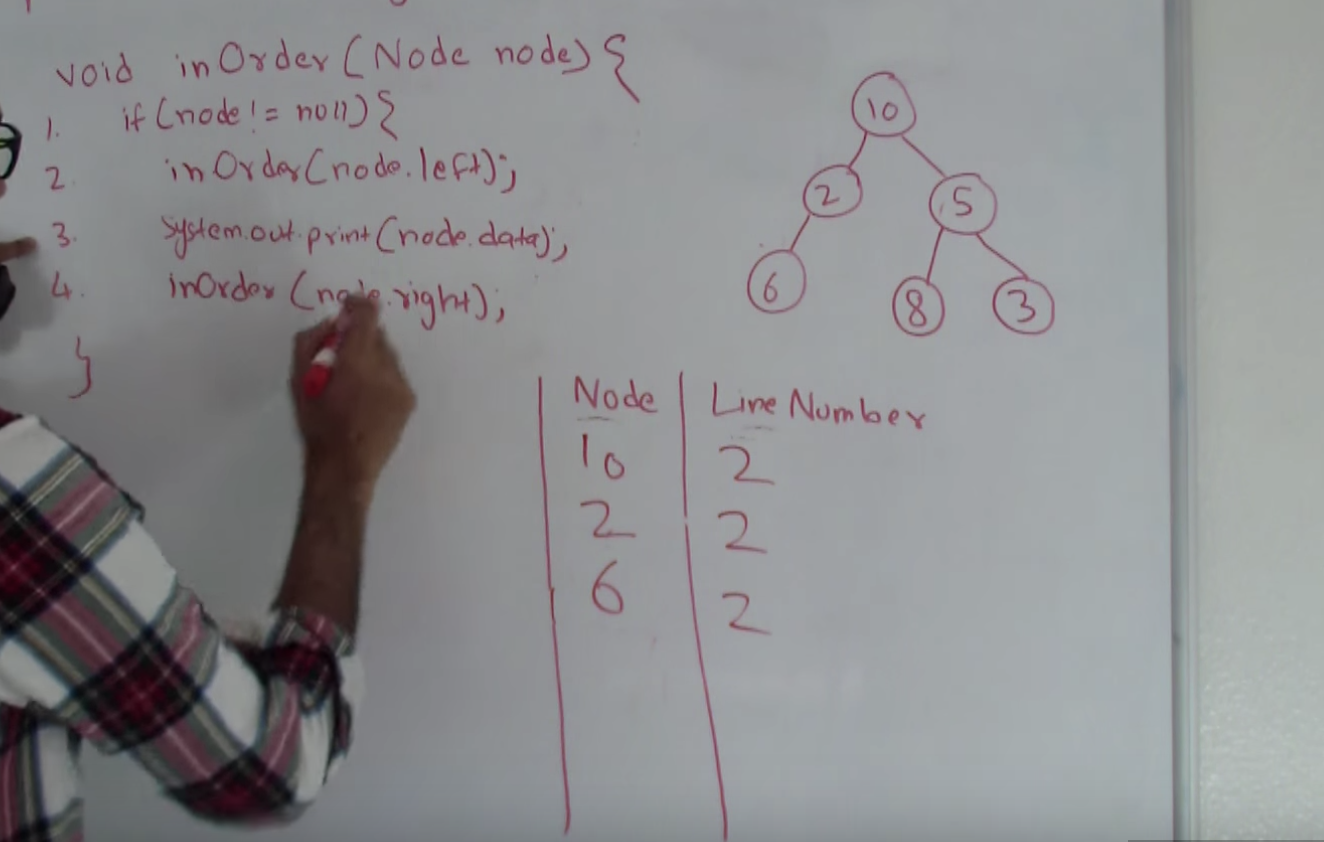 void inOrder(Node node){
1. if(node != null){
2. inOrder(node.left);
3. System.out.print(node.data);
4. inOrder(node.right);
}
10
2 5
6 8 3
Node Line Number
10 2
2 2
6 2